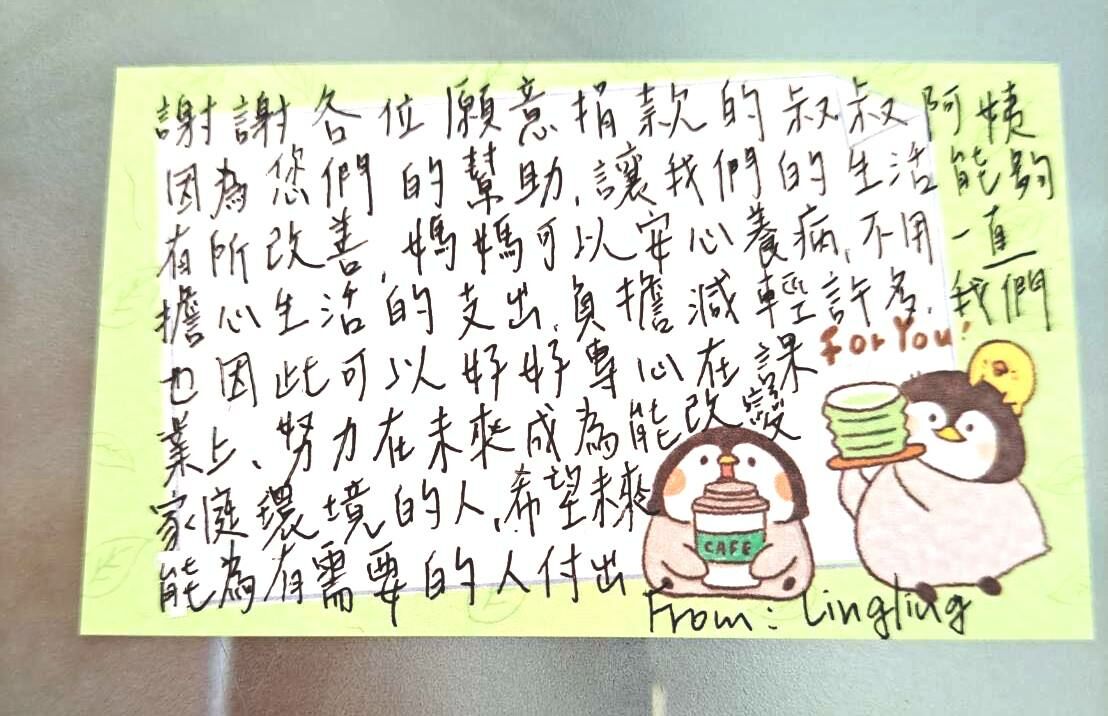 謝謝各位願意捐款的叔叔阿姨
因為您們的幫助,讓我們的生活能夠
有所改善,媽媽可以安心養病,不用一直
擔心生活的支出,負擔減輕許多,我們
也因此可以好好專心在課
業上、努力在未來成為能改變
家庭環境的人,希望未來
能為有需要的人付出
For You!
CAFE
From: Lingling